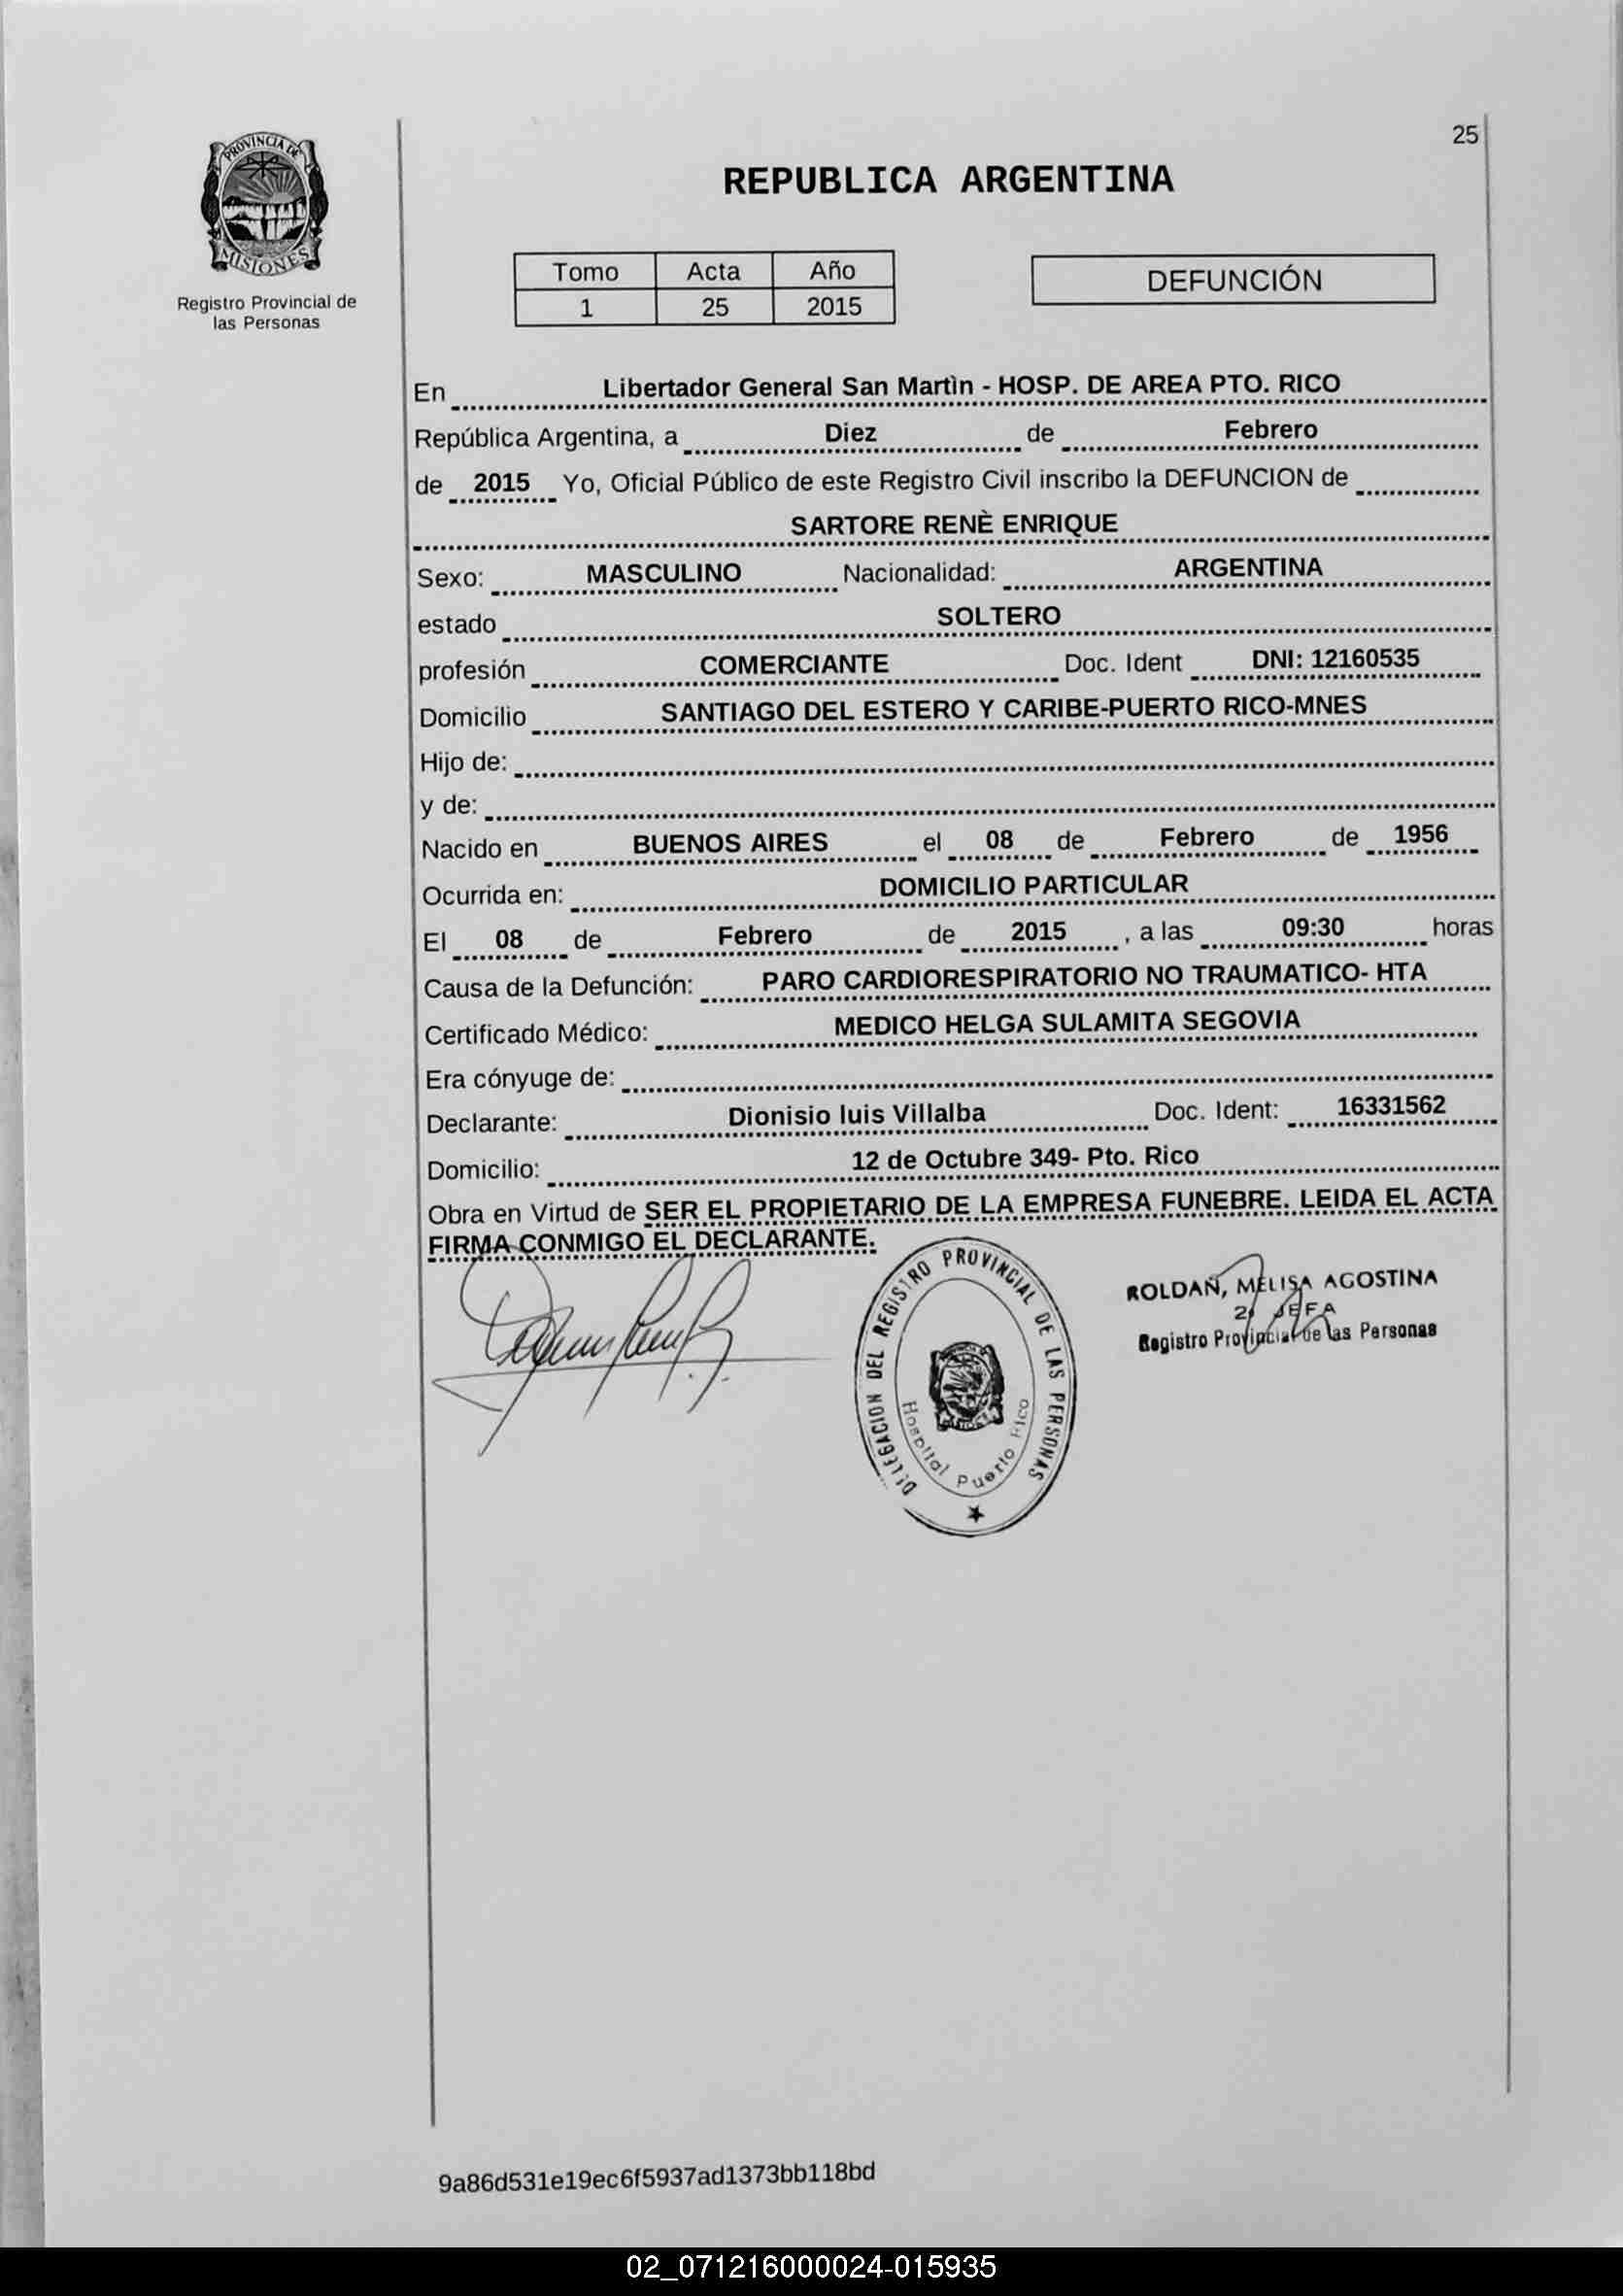 25
PROVINCIA DE
MISIONES
Registro Provincial de
las Personas
REPUBLICA ARGENTINA
Tomo Acta Año
1 25 2015
DEFUNCIÓN
En Libertador General San Martìn - HOSP. DE AREA PTO. RICO
República Argentina, a Diez de Febrero
de 2015 Yo, Oficial Público de este Registro Civil inscribo la DEFUNCION de
SARTORE RENÈ ENRIQUE
Sexo: MASCULINO Nacionalidad: ARGENTINA
estado SOLTERO
profesión COMERCIANTE Doc. Ident DNI: 12160535
Domicilio SANTIAGO DEL ESTERO Y CARIBE-PUERTO RICO-MNES
Hijo de:
y de:
Nacido en BUENOS AIRES el 08 de Febrero de 1956
Ocurrida en: DOMICILIO PARTICULAR
El 08 de Febrero de 2015 , a las 09:30 horas
Causa de la Defunción: PARO CARDIORESPIRATORIO NO TRAUMATICO- HTA
Certificado Médico: MEDICO HELGA SULAMITA SEGOVIA
Era cónyuge de:
Declarante: Dionisio luis Villalba Doc. Ident: 16331562
Domicilio: 12 de Octubre 349- Pto. Rico
Obra en Virtud de SER EL PROPIETARIO DE LA EMPRESA FUNEBRE. LEIDA EL ACTA
FIRMA CONMIGO EL DECLARANTE.
DELEGACION DEL REGISTRO PROVINCIAL DE LAS PERSONAS
Hospital Puerto Rico
ROLDAN, MELISA AGOSTINA
JEFA
Registro Provincial de las Personas
9a86d531e19ec6f5937ad1373bb118bd
02_071216000024-015935